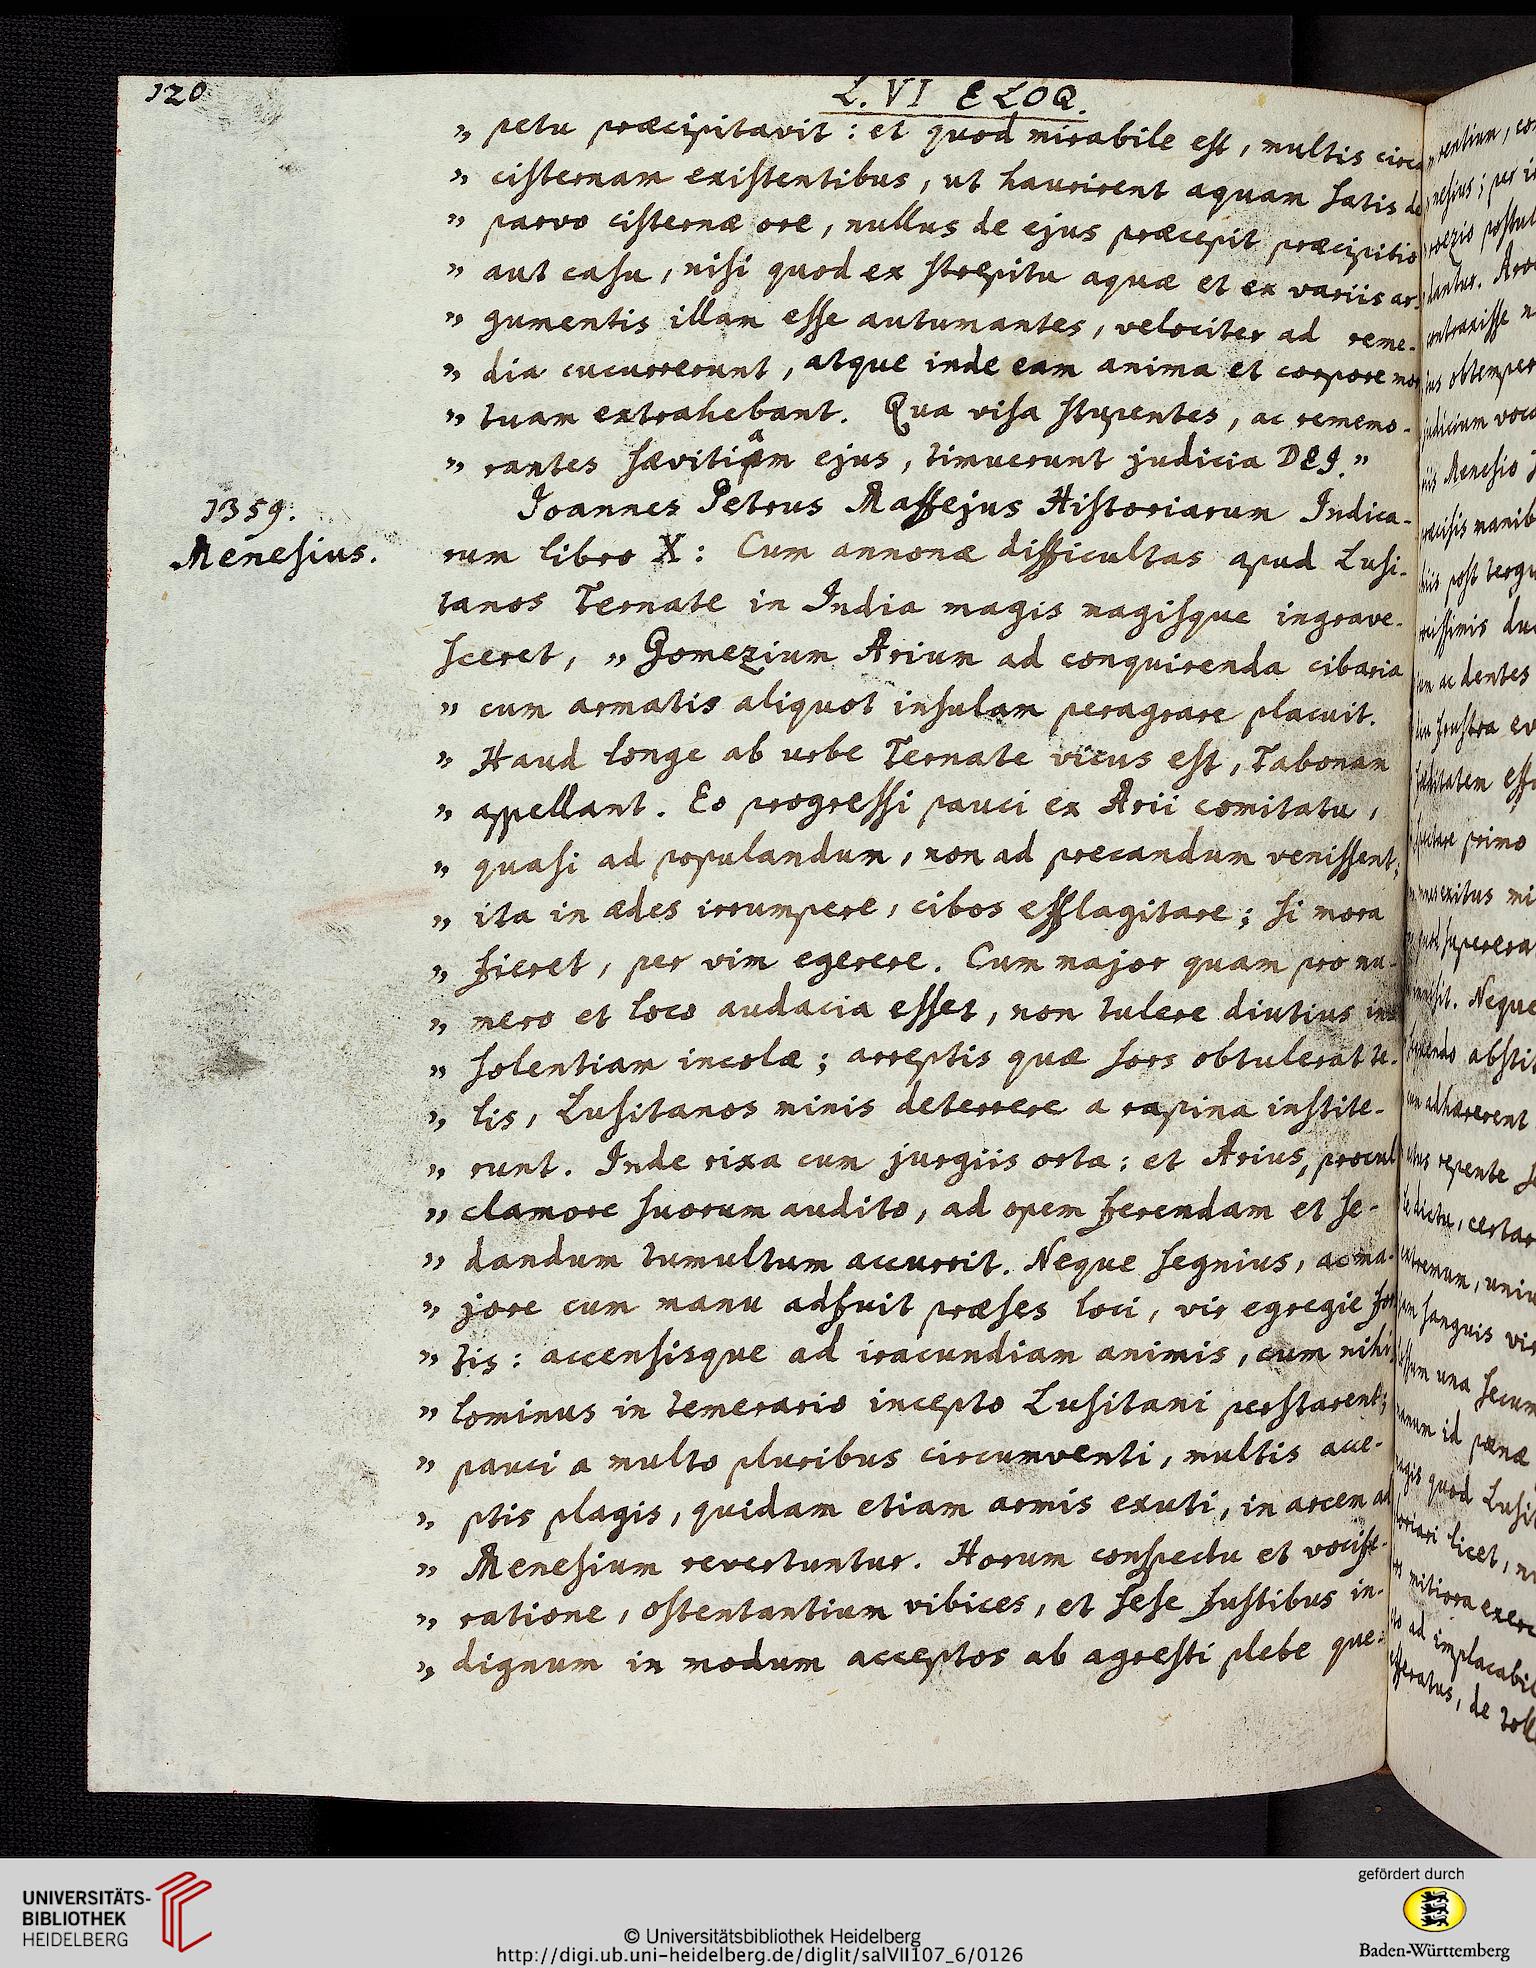 120
L. VI ELOQ.
„ petu præcipitavit : et quod mirabile est, multis circa
„ cisternam existentibus, ut haurirent aquam satis de
„ parvo cisternæ ore, nullus de ejus præcepit præcipitio
„ aut casu, nisi quod ex strepitu aquæ et ex variis ar-
„ gumentis illam esse autumantes, velociter ad reme-
„ dia cucurrerunt, atque inde eam anima et corpore mor
„ tuam extrahebant. Qua visa stupentes, ac rememo-
„ rantes sævitiam ejus, timuerunt judicia DEI. „
1359.
Menesius.
Joannes Petrus Maffejus Historiarum Indica-
rum libro X: Cum annonæ difficultas apud Lusi-
tanos Ternate in India magis magisque ingrave-
sceret, „ Gomezium Arium ad conquirenda cibaria
„ cum armatis aliquot insulam peragrare placuit.
„ Haud longe ab urbe Ternate vicus est, Tabonam
„ appellant. Eo progressi pauci ex Arii comitatu,
„ quasi ad populandum, non ad precandum venissent;
„ ita in ædes irrumpere, cibos efflagitare; si mora
„ fieret, per vim egerere. Cum major quam pro nu-
„ mero et loco audacia esset, non tulere diutius in
„ solentiam incolæ; arreptis quæ sors obtulerat te-
„ lis, Lusitanos minis deterrere a rapina institе-
„ runt. Inde rixa cum jurgiis orta: et Arius, procul
„ clamore suorum audito, ad opem ferendam et se-
„ dandum tumultum accurrit. Neque segnius, ac ma-
„ jore cum manu adfuit præses loci, vir egregie for
„ tis: accensisque ad iracundiam animis, cum nihi
„ lominus in temerario incepto Lusitani perstarent;
„ pauci a multo pluribus circumventi, multis acce-
„ ptis plagis, quidam etiam armis exuti, in arcem ad
„ Menesium revertuntur. Horum conspectu et vocife-
„ ratione, ostentantium vibices, et sese fustibus in-
„ dignum in modum acceptos ab agresti plebe que-
UNIVERSITÄTS-
BIBLIOTHEK
HEIDELBERG
© Universitätsbibliothek Heidelberg
http://digi.ub.uni-heidelberg.de/diglit/salVII107_6/0126
gefördert durch
Baden-Württemberg